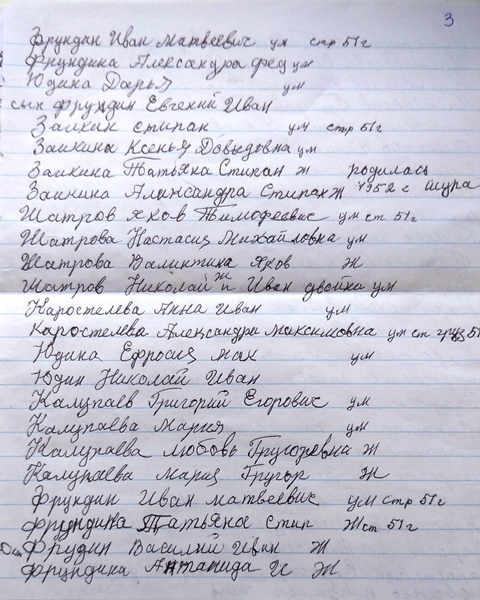 3
Фрундан Иван Матвеевис ум стр 51г
Фрундина Александра фед ум
Юдина Дарья ум
сын фрундин Евгений Иван
Заикин стипан ум стр 51г
Заикина Ксенья Довыдовна ум
Заикина Татьяна Стипан ж родилась
Заикина Аликсандра Стипан ж 1952 г
Шатров яков Тимофеевис ум ст 51г
Шатрова Настасия Михайловна ум
Шатрова Валинтина Яков ж
Шатров Николай ж и Иван двойка ум
Каростелева Анна Иван ум
Каростелева Алецсандра Максимовна ум ст
Юдина Ефросия мак ум
Юдин Николай Иван
Калупаев Григорий Егоровис ум
Калупаева Мария ум
Калупаева Любовь Григоревна Ж
Калупаева Мария Григор Ж
Фрундин Иван матвеевис ум стр 51г
Фрундина Татьяна Стип Ж ст 51г
Фрудин Василий Иван Ж
Фрундина И Ж